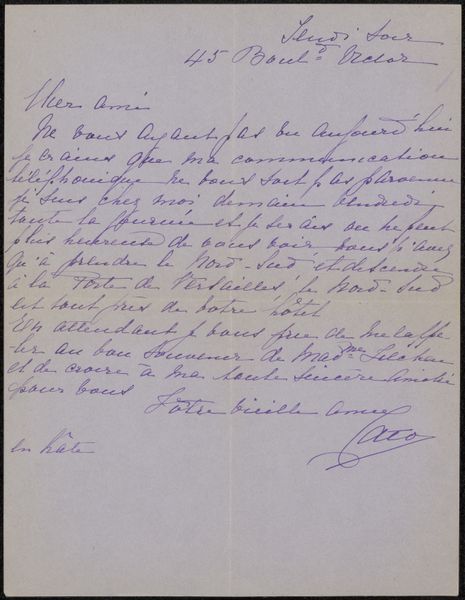 Jeudi soir
45 Boul.d Victor
Cher ami
Ne vous ayant pas vu aujourd'hui
je crains que ma communication
téléphonique ne vous soit pas parvenue
je suis chez moi demain vendredi
toute la journée et je serais on ne peut
plus heureuse de vous voir vous n'avez
qu'à prendre le Nord-Sud et descendre
à la Porte de Versailles, le Nord-Sud
est tout près de votre hôtel
En attendant je vous prie de me rappe
ler au bon souvenir de Mad.me
et de croire à ma toute sincère amitié
pour vous
Votre vieille amie
Cato
en hâte